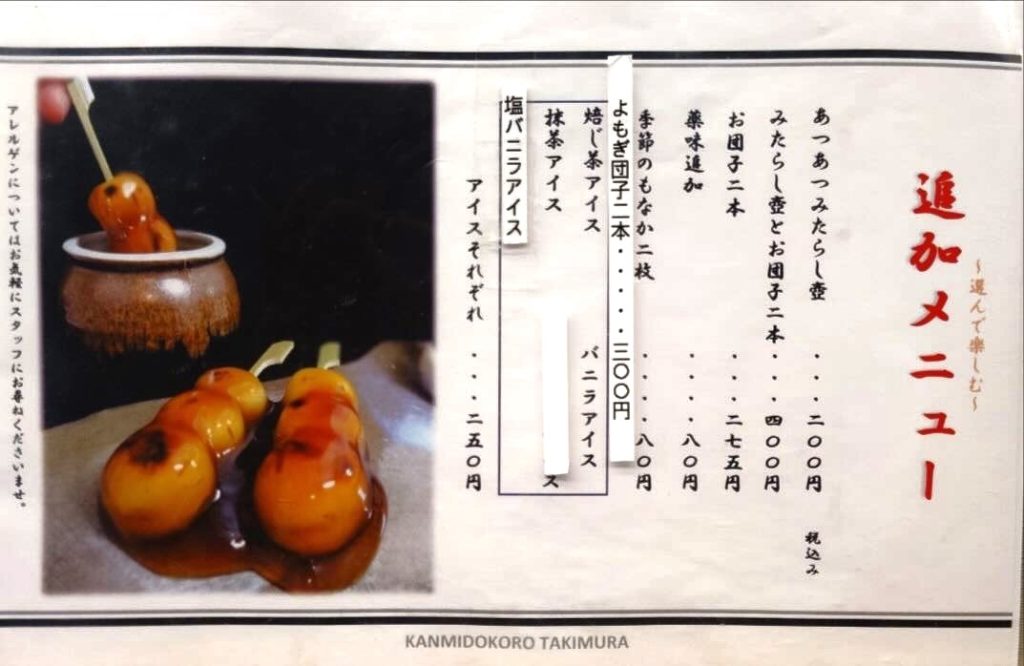 追加メニュー
~選んで楽しむ~
あつあつみたらし壺・・・二〇〇円 税込み
みたらし壺とお団子二本・・・四〇〇円
お団子二本・・・二七五円
薬味追加・・・・八〇円
季節のもなか二枚・・・・八〇円
よもぎ団子二本・・・・・三〇〇円
焙じ茶アイス バニラアイス
抹茶アイス ス
塩バニラアイス
アイスそれぞれ・・・二五〇円
アレルゲンについてはお気軽にスタッフにお尋ねくださいませ。
KANMIDOKORO TAKIMURA